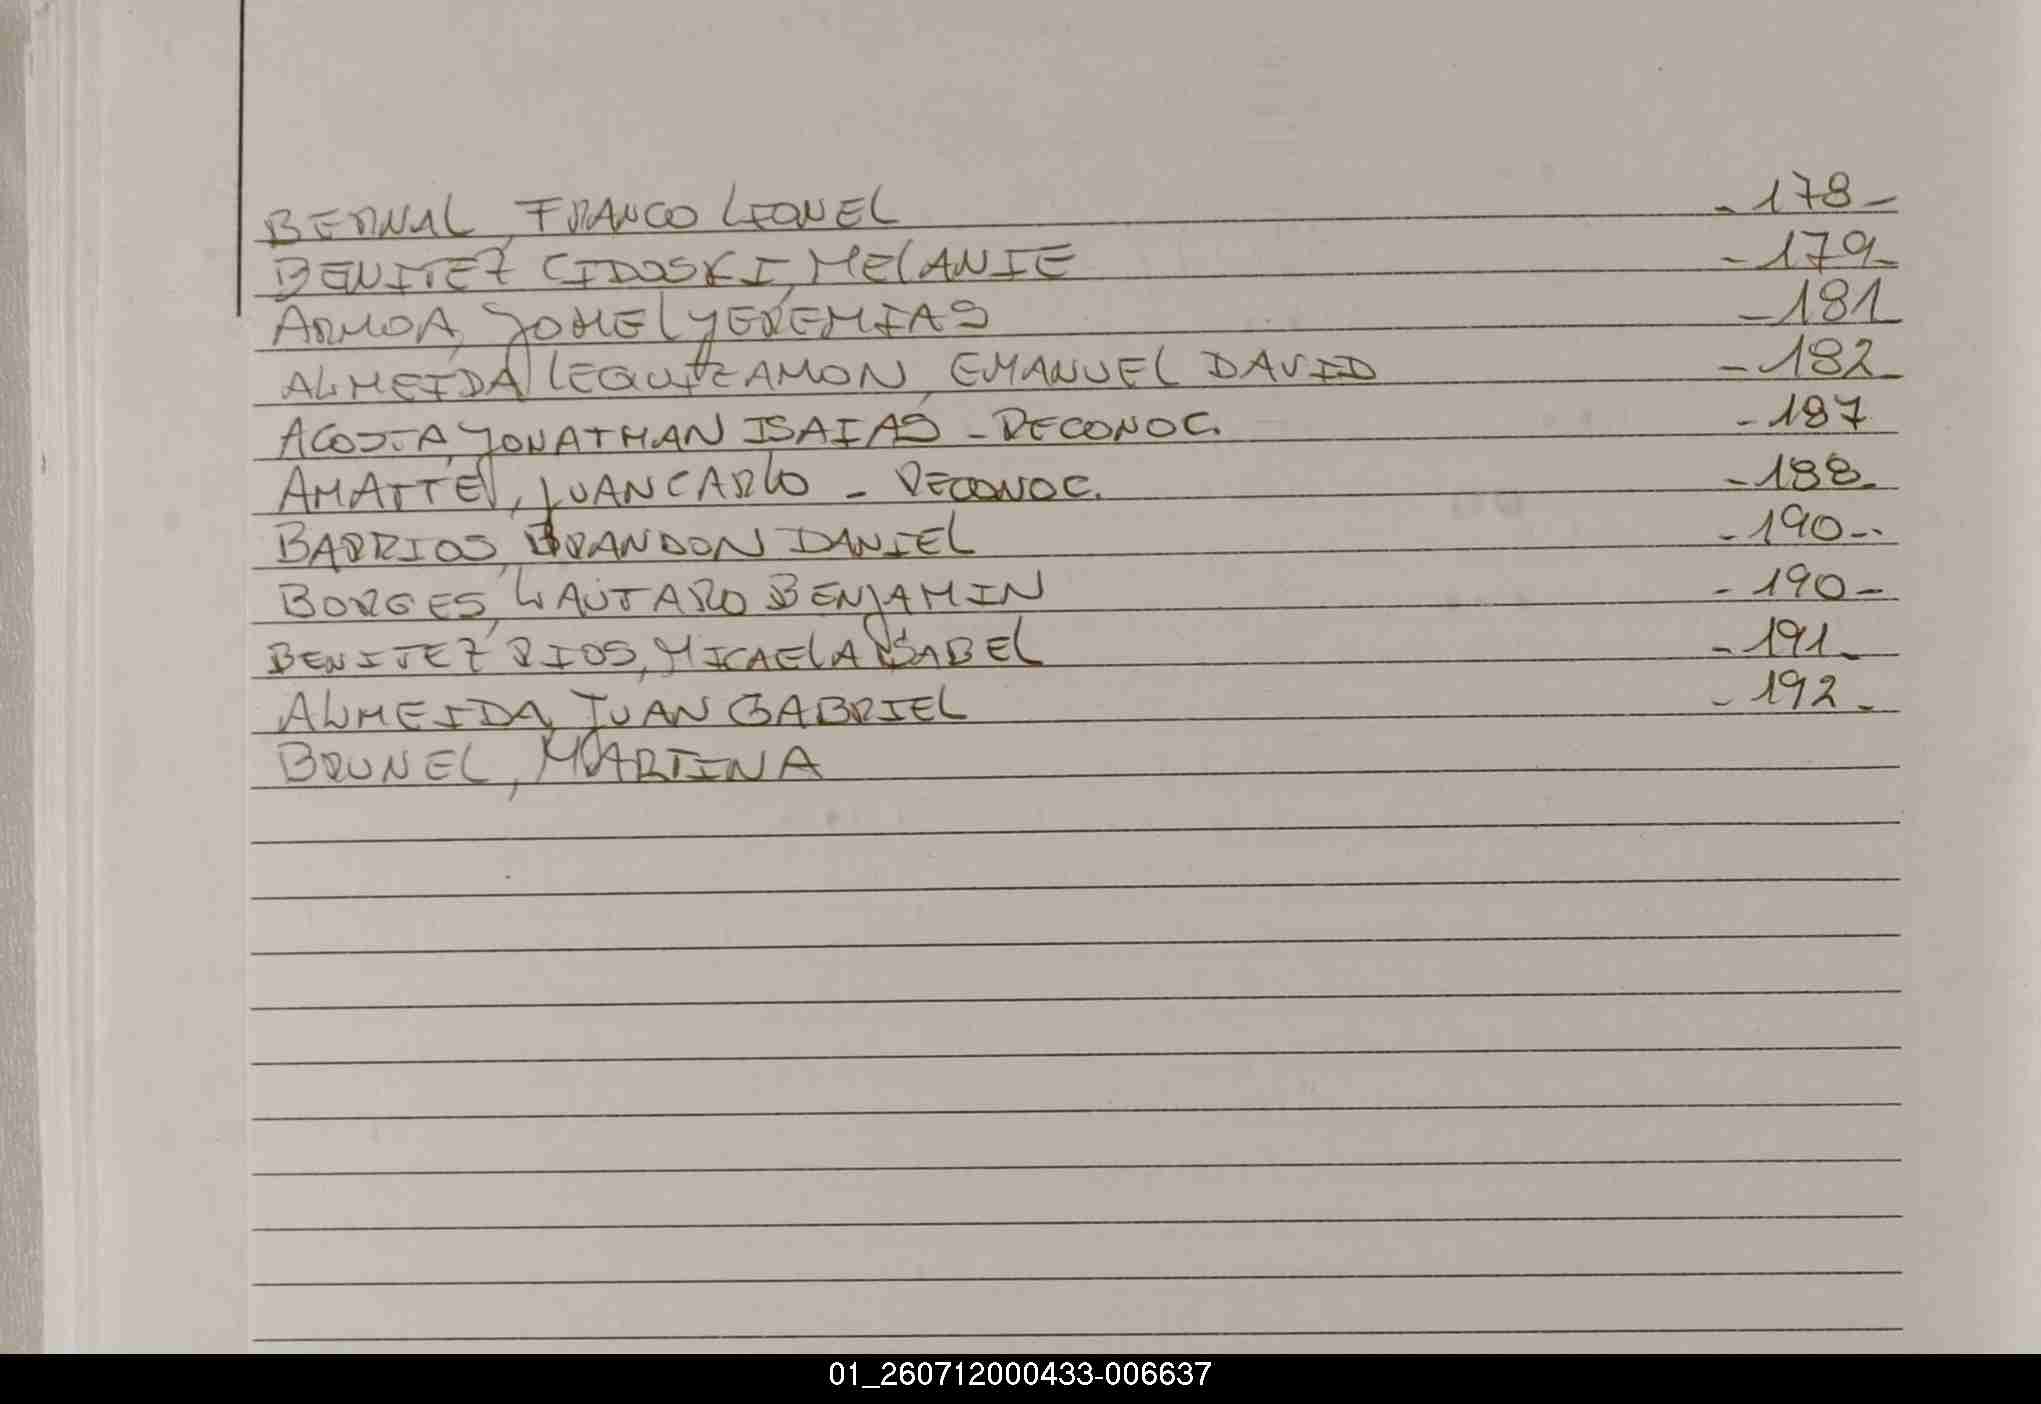 BERNAL, FRANCO LEONEL -178-
BENITEZ CIDOSKI, MELANIE -179-
ARMOA, YOHEL YEREMIAS -181
ALMEIDA LEQUIZAMON, EMANUEL DAVID -182-
ACOSTA, JONATHAN ISAIAS - RECONOC. -187
AMATTE, JUAN CARLO - RECONOC. -188-
BARRIOS, BRANDON DANIEL -190-
BORGES, LAUTARO BENJAMIN -190-
BENITEZ RIOS, MICAELA ISABEL -191-
ALMEIDA, JUAN GABRIEL -192-
BRUNEL, MARTINA
01_260712000433-006637